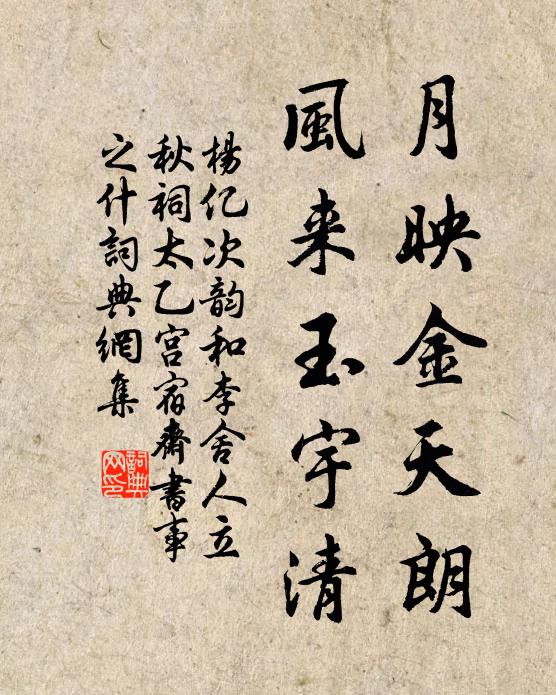 月映金天朗
風来玉宇清
楊亿次韵和李舍人立
秋祠太乙宮宿齋書事
之什詞典網集
詞典
网印